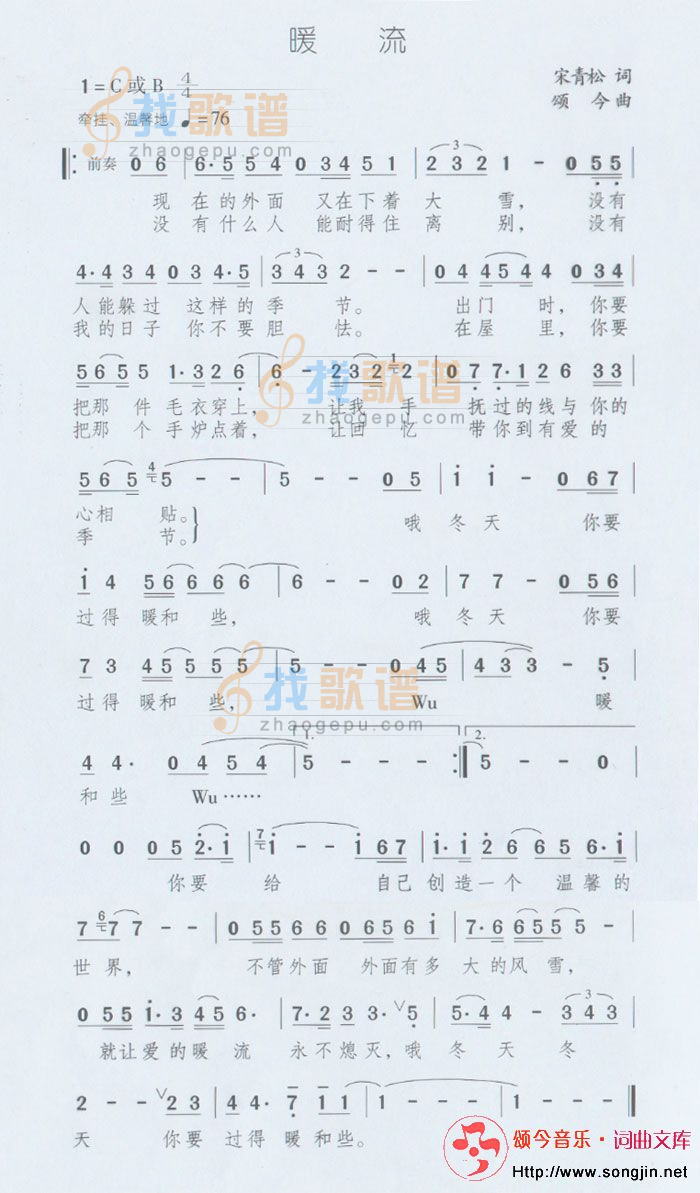 暖 流
1=C或B 4/4
宋青松 词
牵挂、温馨地 ♩=76
颂 今 曲
找歌谱
zhaogepu.com
前奏 0 6 | 6· 5 5 4 0 3 4 5 1 | 2 3 2 1 - 0 5 5
现在的外面 又在下着 大 雪, 没有
没有什么人 能耐得住 离 别, 没有
4· 4 3 4 0 3 4· 5 | 3 4 3 2 - - | 0 4 4 5 4 4 0 3 4
人能躲过 这样的季 节。 出门 时, 你要
我的日子 你不要胆 怯。 在屋 里, 你要
5 6 5 5 1· 3 2 6 | 6 - 2 3 2 2 | 0 7 7· 1 2 6 3 3
把那 件 毛衣穿上, 让我 手 抚过的线与你的
把那 个 手炉点着, 让回 忆 带你到有爱的
找歌谱
zhaogepu.com
5 6 5 5 - - | 5 - - 0 5 | i i - 0 6 7
心相 贴。 哦冬天 你要
季 节。
i 4 5 6 6 6 6 6 | 6 - - 0 2 | 7 7 - 0 5 6
过得 暖和 些, 哦冬天 你要
7 3 4 5 5 5 5 | 5 - - 0 4 5 | 4 3 3 - 5
过得 暖和些, Wu 暖
找歌谱
zhaogepu.com
1. 2.
4 4· 0 4 5 4 | 5 - - - :| 5 - - 0
和些 Wu……
0 0 0 5 2· i | i - - i 6 7 | i· i 2 6 6 6 5 6· i
你要 给 自己创造一个 温馨的
7 7 - - | 0 5 5 6 6 0 6 5 6 i | 7· 6 6 5 5 -
世界, 不管外面 外面有多 大的风雪,
0 5 5 i· 3 4 5 6· | 7· 2 3 3· 5 | 5· 4 4 3 4 3
就让爱的暖 流 永不熄灭,哦 冬 天 冬
2 - - 2 3 | 4 4· 7 1 1 | 1 - - - | 1 - - -
天 你要 过得 暖和些。
颂今音乐·词曲文库
Http://www.songjin.net